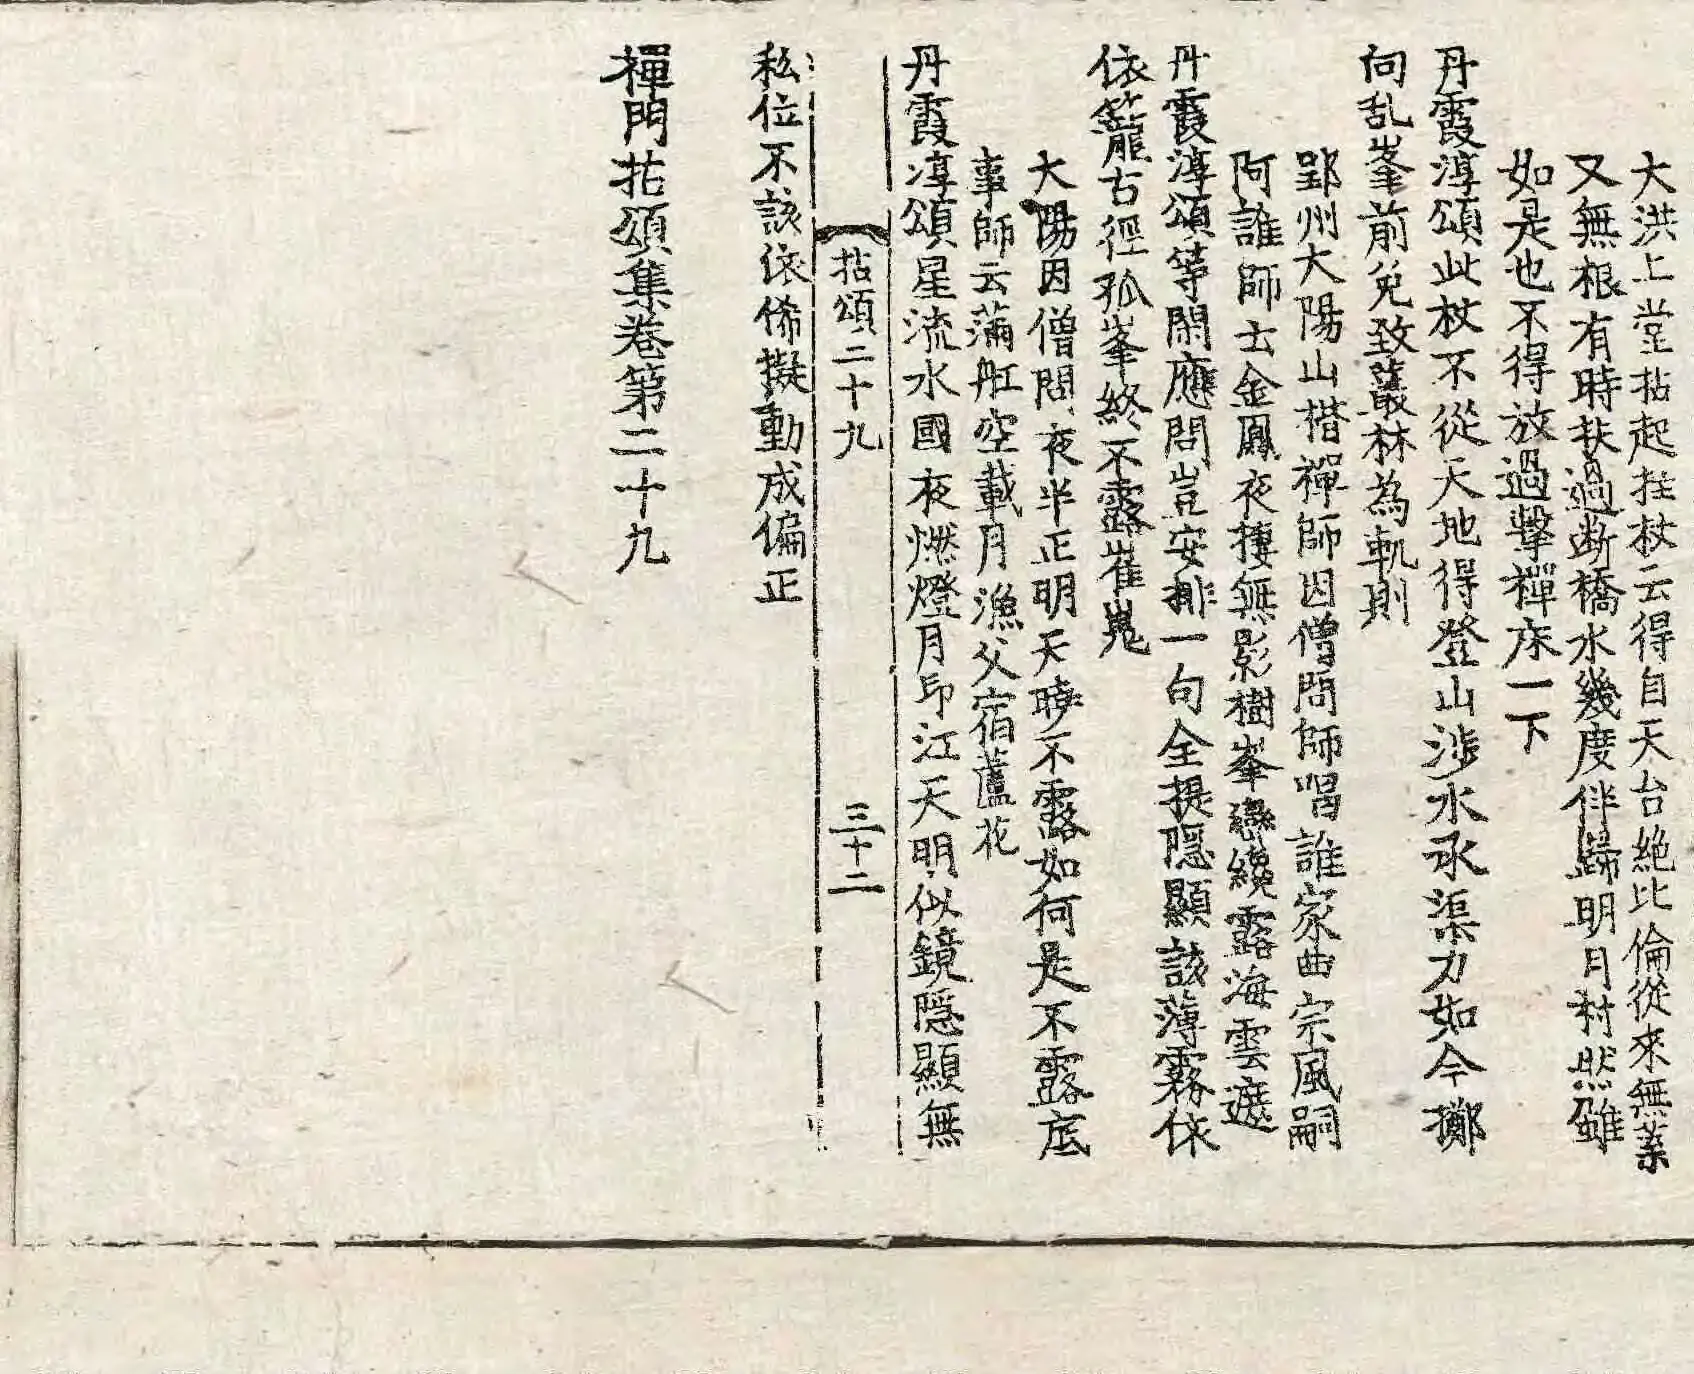 大洪上堂拈起拄杖云得自天台絶比倫從來無葉
又無根有時扶過断橋水幾度伴歸明月村然雖
如是也不得放過擊禪床一下
丹霞淳頌此杖不從天地得登山涉水承渠力如今擲
向乱峯前免致叢林為軌則
郢州大陽山楷禪師因僧問師唱誰家曲宗風嗣
阿誰師云金鳳夜捿無影樹峯巒纔露海雲遮
丹霞淳頌等閑應問豈安排一句全提隱顯該薄霧依
依籠古徑孤峯終不露崔嵬
大陽因僧問夜半正明天曉不露如何是不露底
事師云滿舡空載月漁父宿蘆花
丹霞淳頌星流水國夜燃燈月印江天明似鏡隱顯無
拈頌二十九 三十二
私位不該依俙擬動成偏正
禪門拈頌集卷第二十九